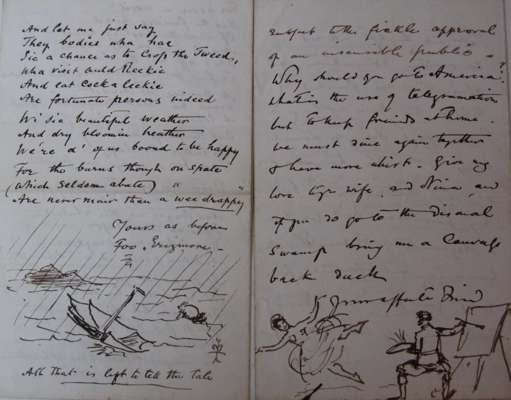 And let me just say
They bodies wha hae
Sic a chance as to Cross the Tweed,
Wha visit auld Reekie
And eat Cock a leekie
Are fortunate persons indeed
Wi' sic beautiful weather
And dry bloomin heather
We're a' of us bound to be happy
For the burns though on spate
(Which seldom abate)
Are never mair than a wee drappy
Yours as before
All that is left to tell the tale
subject to the fickle approval
of an insensible public –
Why should you go to America?
what's the use of telegrams
but to keep friends at home.
We must dine again together
& have more whist. Give my
love to yr wife, and Nina, and
if you do go to the Dismal
Swamp bring me a Canvas
back duck